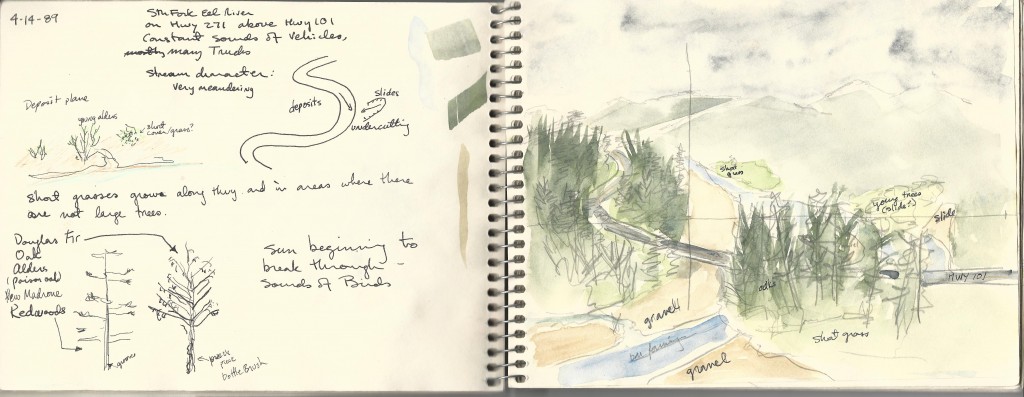 4-14-89
Sth Fork Eel River
on Hwy 271 above Hwy 101
Constant sounds of Vehicles,
mostly many Trucks
Stream character:
very meandering
deposits
slides
undercutting
Deposit plane
young alders
short
cover/grass?
Short grasses grow along Hwy. and in areas where there
are not large trees.
Douglas Fir
Oak
Alders
(poison oak)
New Madrone
Redwoods
sun beginning to
break through -
Sounds of Birds
bottle Brush
short
grass
young trees
(slide?)
slide
HWY 101
oaks
gravel
short grass
gravel